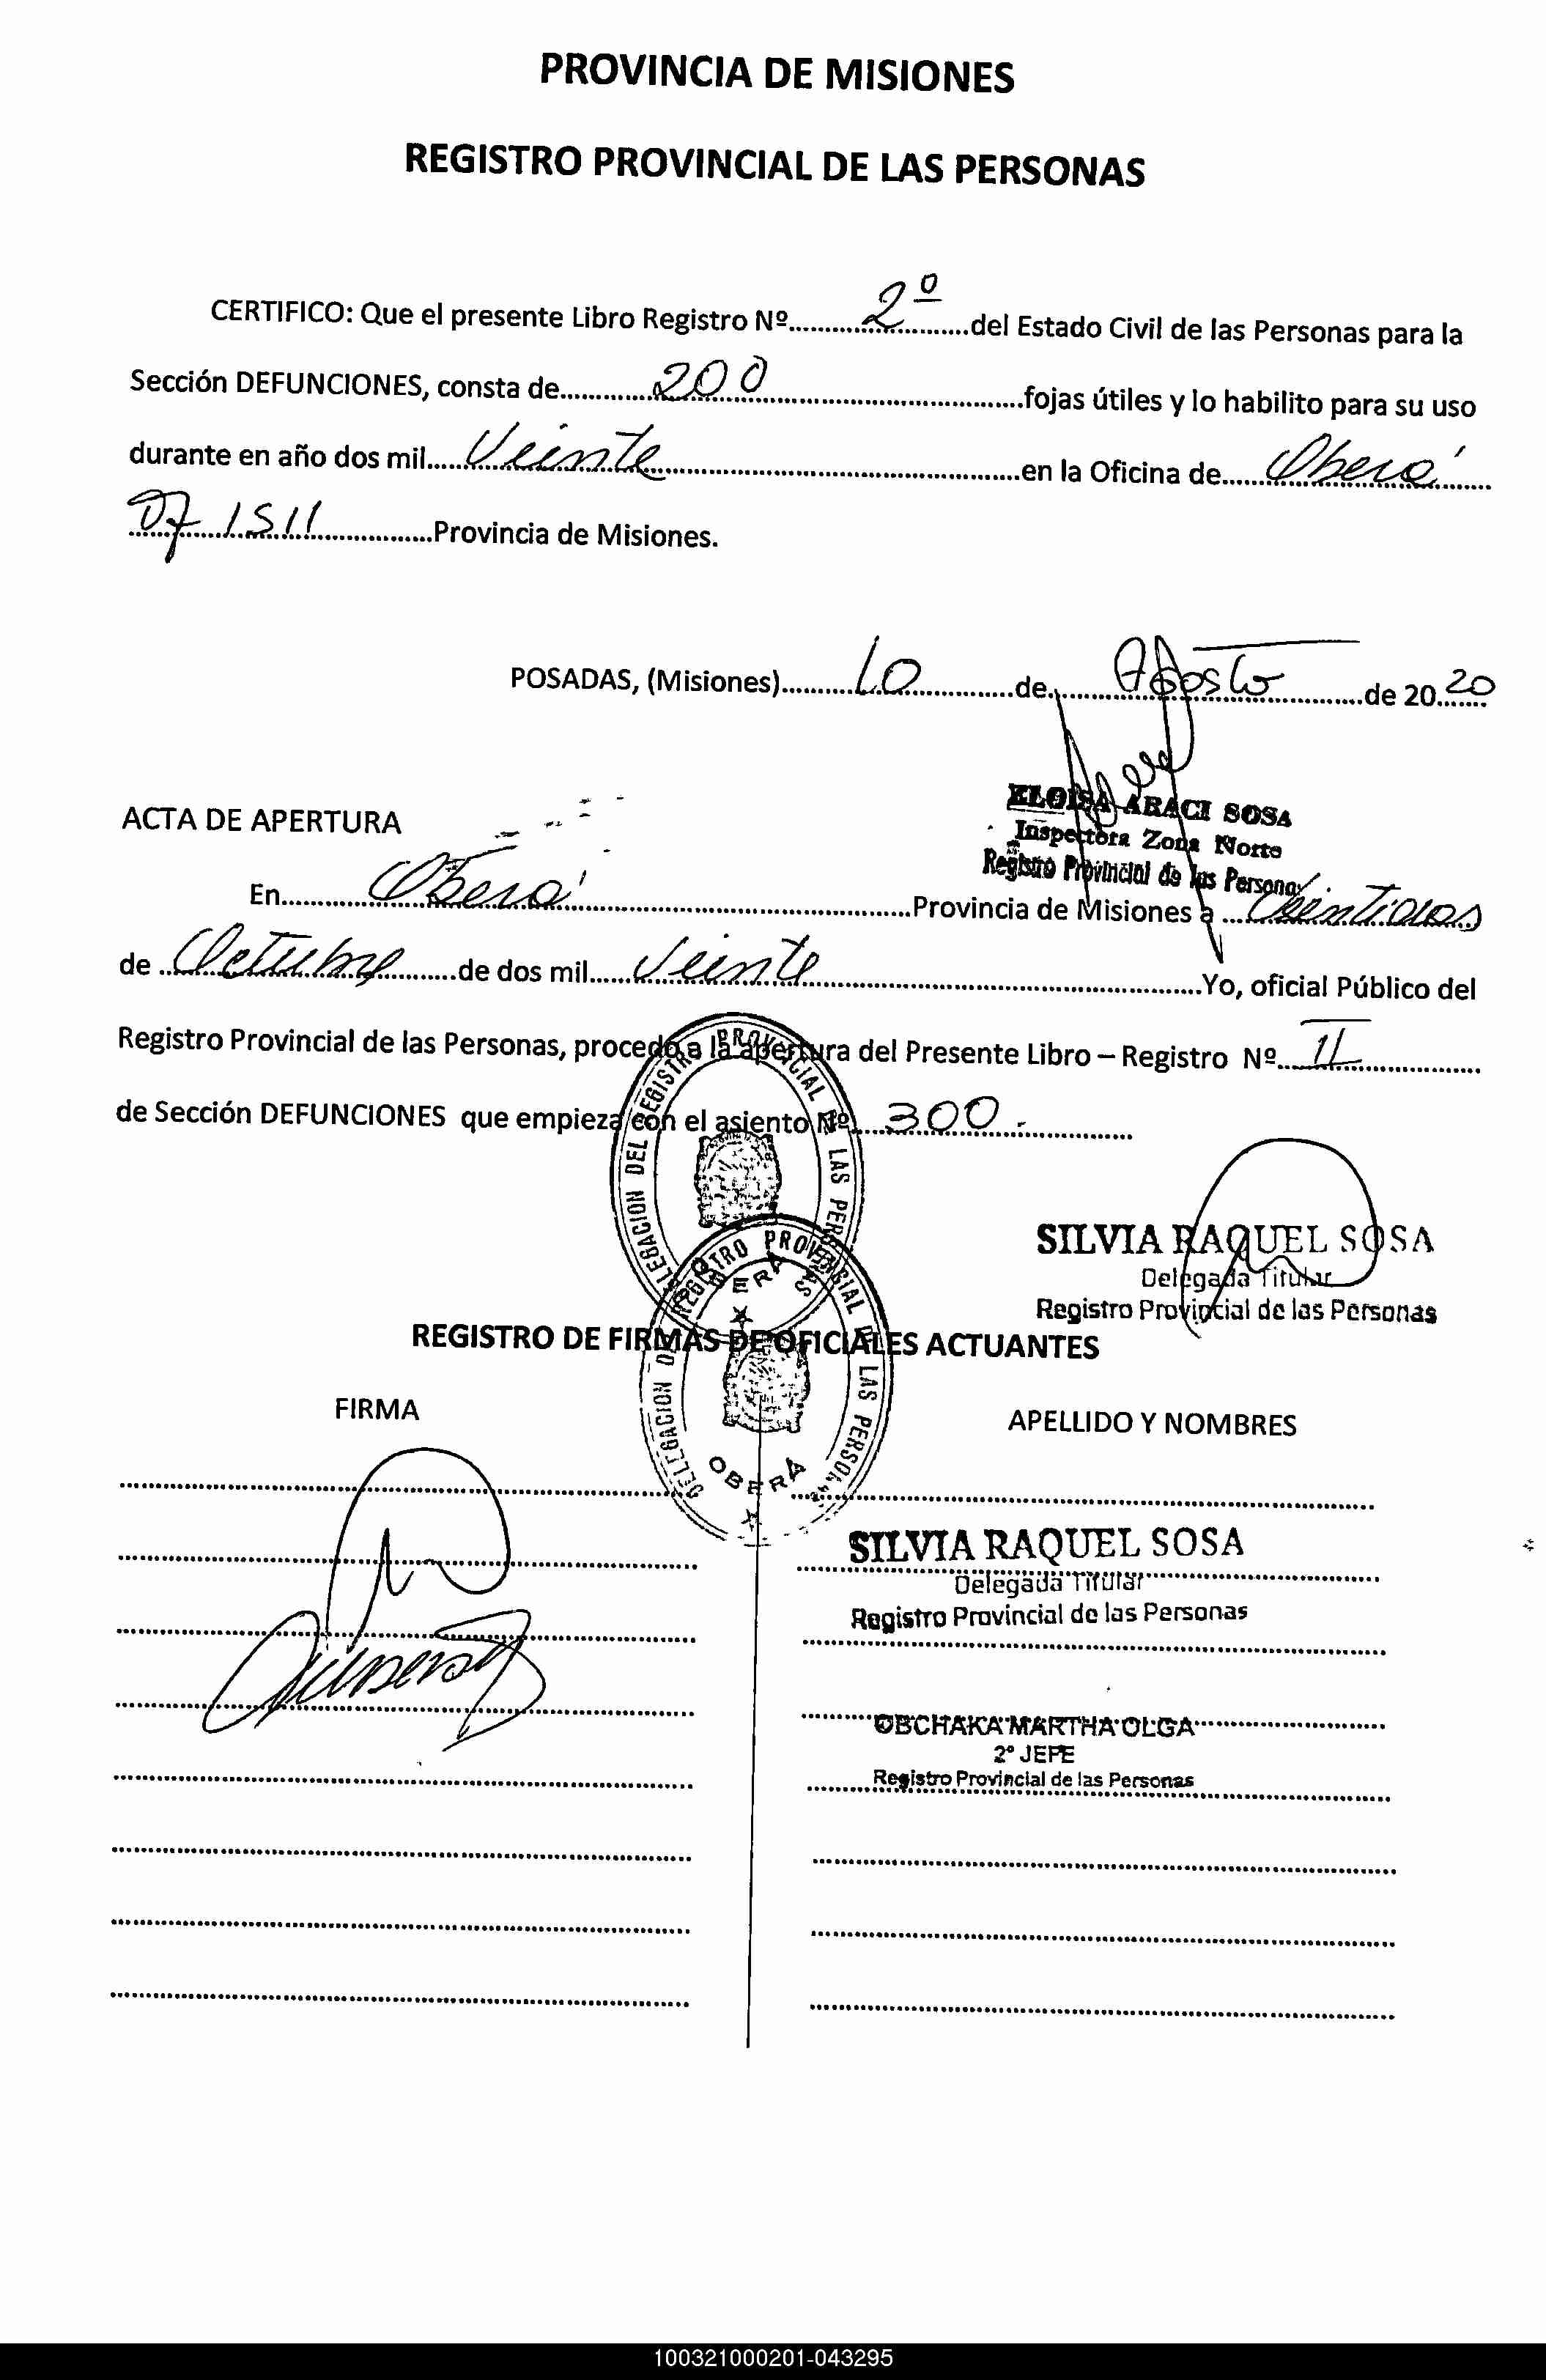 PROVINCIA DE MISIONES
REGISTRO PROVINCIAL DE LAS PERSONAS
CERTIFICO: Que el presente Libro Registro Nº 2º del Estado Civil de las Personas para la
Sección DEFUNCIONES, consta de 200 fojas útiles y lo habilito para su uso
durante en año dos mil Veinte en la Oficina de Oberá
07 1511 Provincia de Misiones.
POSADAS, (Misiones) 10 de Agosto de 2020
ELOISA ARACI SOSA
Inspectora Zona Norte
Registro Provincial de las Personas
ACTA DE APERTURA
En Oberá Provincia de Misiones a Veintidos
de Octubre de dos mil Veinte Yo, oficial Público del
Registro Provincial de las Personas, procedo a la apertura del Presente Libro – Registro Nº II
de Sección DEFUNCIONES que empieza con el asiento Nº 300.-
DELEGACION DEL REGISTRO PROVINCIAL DE LAS PERSONAS
OBERA
SILVIA RAQUEL SOSA
Delegada Titular
Registro Provincial de las Personas
DELEGACION DEL REGISTRO PROVINCIAL DE LAS PERSONAS
OBERA
REGISTRO DE FIRMAS DE OFICIALES ACTUANTES
FIRMA
APELLIDO Y NOMBRES
SILVIA RAQUEL SOSA
Delegada Titular
Registro Provincial de las Personas
OBCHAKA MARTHA OLGA
2º JEFE
Registro Provincial de las Personas
100321000201-043295